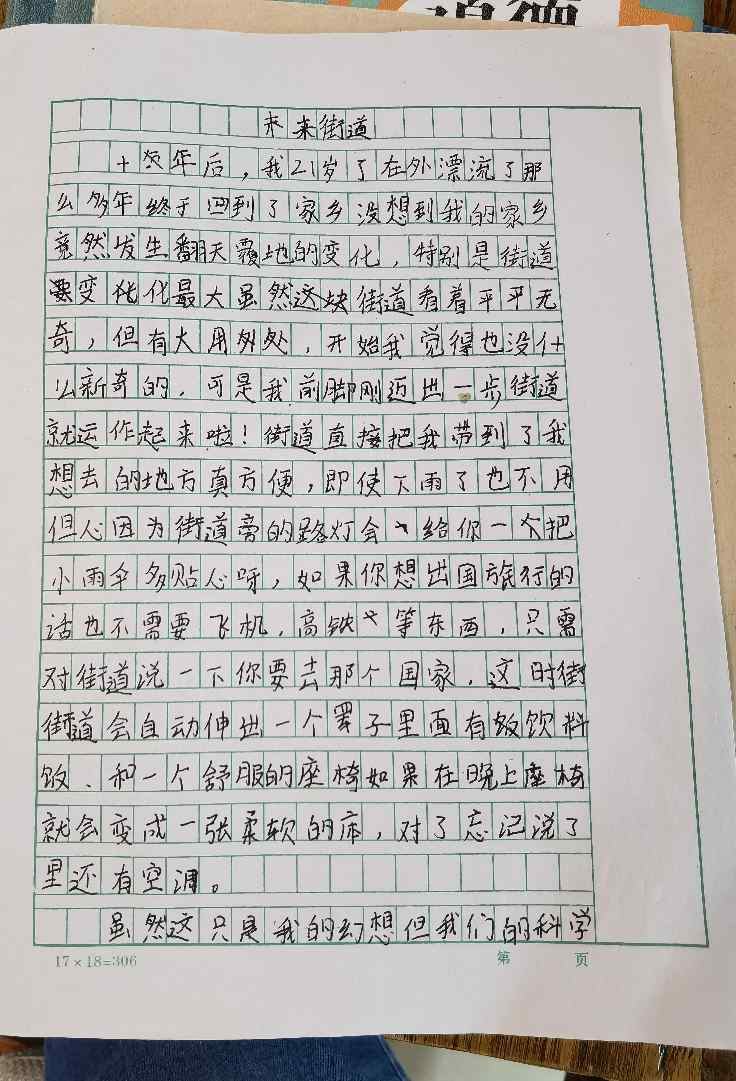 道德
未来街道
十几年后，我21岁了在外漂流了那
么多年终于回到了家乡没想到我的家乡
竟然发生翻天覆地的变化，特别是街道
变化最大虽然这块街道看着平平无
奇，但有大用处，开始我觉得也没什
么新奇的，可是我前脚刚迈出一步街道
就运作起来啦！街道直接把我带到了我
想去的地方真方便，即使下雨了也不用
但心因为街道旁的路灯会给你一个把
小雨伞多贴心呀，如果你想出国旅行的
话也不需要飞机，高铁等东西，只需
对街道说一下你要去那个国家，这时街
街道会自动伸出一个罩子里面有饭饮料
饭、和一个舒服的座椅如果在晚上座椅
就会变成一张柔软的床，对了忘记说了
里还有空调。
虽然这只是我的幻想但我们的科学
17×18=306 第 页